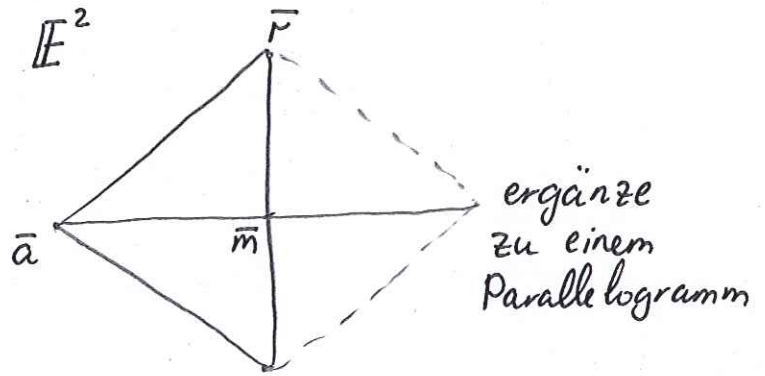 𝔼²
r̄
ā
m̄
ergänze
zu einem
Parallelogramm